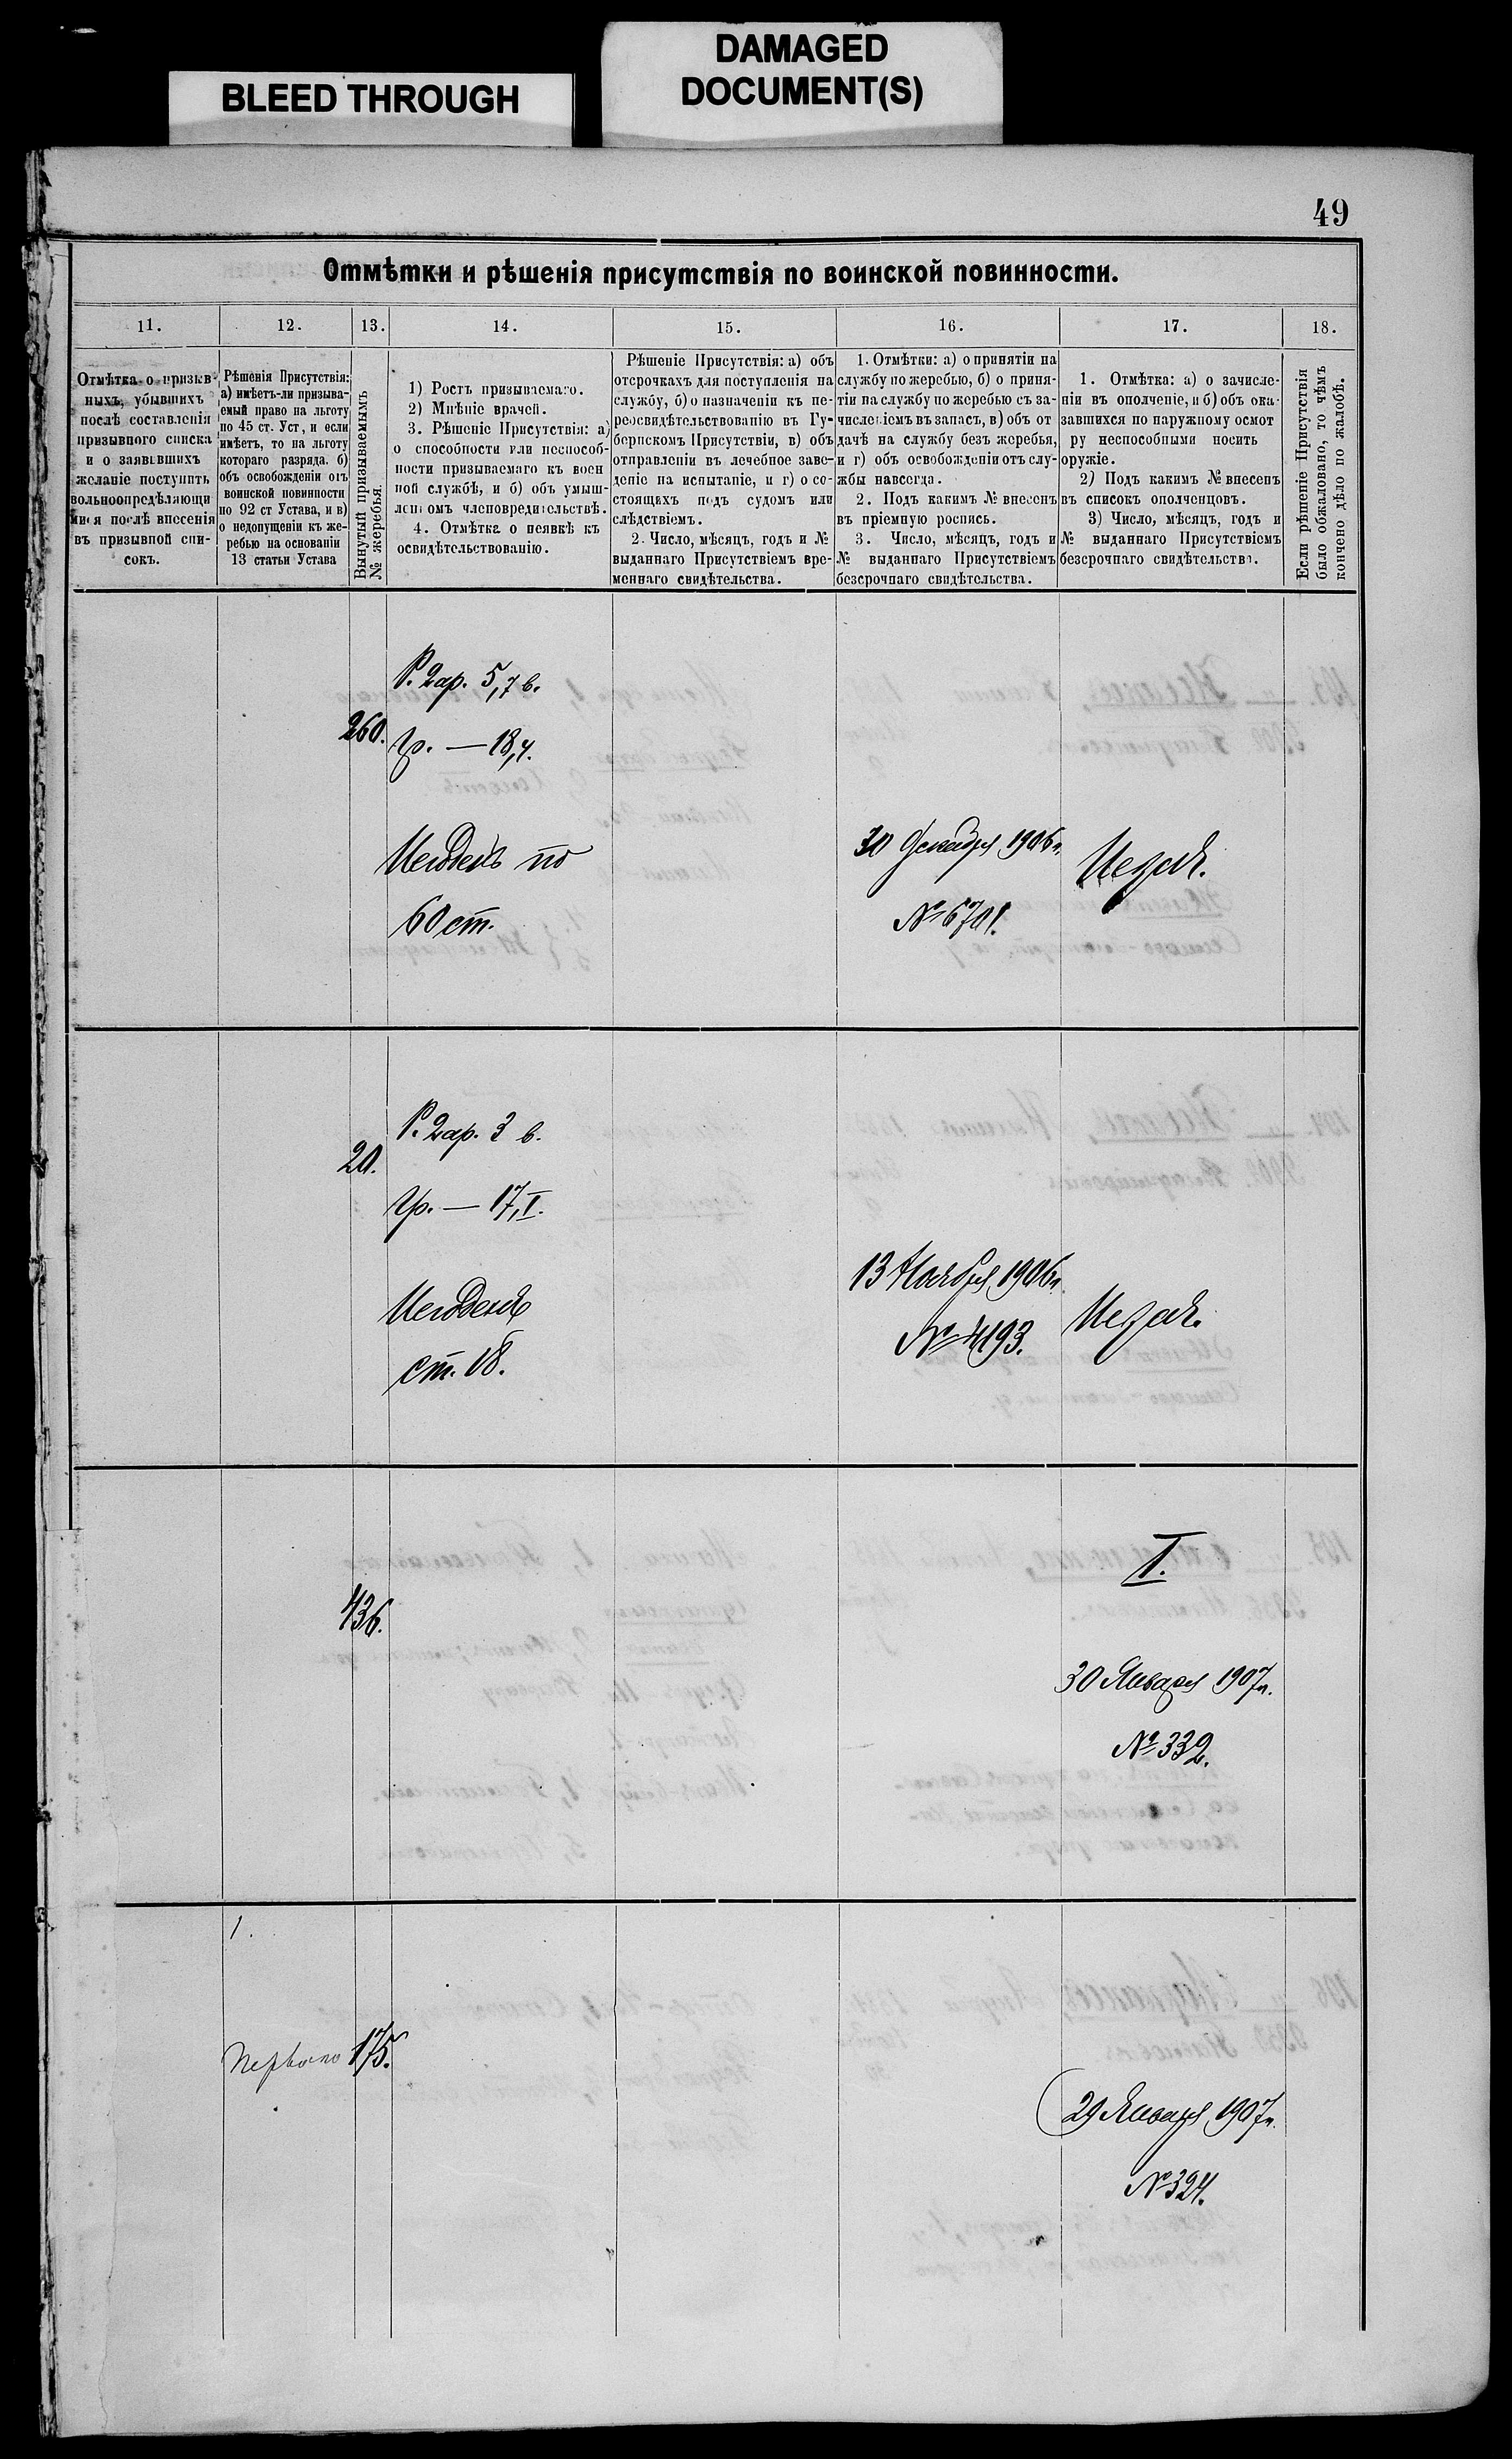 BLEED THROUGH
DAMAGED
DOCUMENT(S)
49
Отмѣтки и рѣшенія присутствія по воинской повинности.
11. 12. 13. 14. 15. 16. 17. 18.
Отмѣтка о призыв-
ныхъ, убывшихъ
послѣ составленія
призывного списка
и о заявившихъ
желаніе поступить
вольноопредѣляющи
мися послѣ внесенія
въ призывной спи-
сокъ.
Рѣшенія Присутствія:
а) имѣетъ-ли призыва-
емый право на льготу
по 45 ст. Уст, и если
имѣетъ, то на льготу
котораго разряда. б)
объ освобожденіи отъ
воинской повинности
по 92 ст Устава, и в)
о недопущеніи къ же-
ребью на основаніи
13 статьи Устава
Вынутый призываемымъ
№ жеребья.
1) Ростъ призываемаго.
2) Мнѣніе врачей.
3. Рѣшеніе Присутствія: а)
о способности или неспособ-
ности призываемаго къ воен
ной службѣ, и б) объ умыш-
леномъ членовредительствѣ.
4. Отмѣтка о неявкѣ къ
освидѣтельствованію.
Рѣшеніе Присутствія: а) объ
отсрочкахъ для поступленія на
службу, б) о назначеніи къ пе-
реосвидѣтельствованію въ Гу-
бернскомъ Присутствіи, в) объ
отправленіи въ лечебное заве-
деніе на испытаніе, и г) о со-
стоящихъ подъ судомъ или
слѣдствіемъ.
2. Число, мѣсяцъ, годъ и №
выданнаго Присутствіемъ вре-
меннаго свидѣтельства.
1. Отмѣтки: а) о принятіи на
службу по жеребью, б) о приня-
тіи на службу по жеребью съ за-
численіемъ въ запасъ, в) объ от
дачѣ на службу безъ жеребья,
и г) объ освобожденіи отъ слу-
жбы навсегда.
2. Подъ какимъ № внесенъ
въ пріемную роспись.
3. Число, мѣсяцъ, годъ и
№ выданнаго Присутствіемъ
безсрочнаго свидѣтельства.
1. Отмѣтка: а) о зачисле-
ніи въ ополченіе, и б) объ ока-
завшихся по наружному осмот
ру неспособными носить
оружіе.
2) Подъ какимъ № внесенъ
въ списокъ ополченцовъ.
3) Число, мѣсяцъ, годъ и
№ выданнаго Присутствіемъ
безсрочнаго свидѣтельства.
Если рѣшеніе Присутствія
было обжаловано, то чѣмъ
кончено дѣло по жалобѣ.
260.
Р. 2ар. 5,7 в.
Гр. — 18,4.
Негоденъ по
60 ст.
30 Декабря 1906 г.
№ 6701.
20.
Р. 2ар. 3 в.
Гр. — 17, I.
Негоденъ
ст. 18.
13 Ноября 1906 г.
№ 4193.
436.
I.
30 Января 1907 г.
№ 332.
1.
Перваго
175.
29 Января 1907 г.
№ 324.